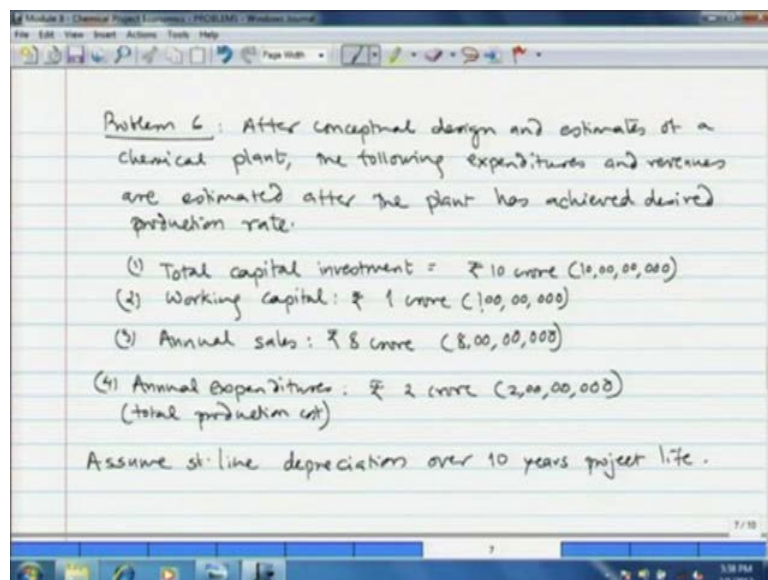 Module 8 - Chemical Project Economics - PROBLEMS - Windows Journal
File Edit View Insert Actions Tools Help
Page Width
Problem 6 : After conceptual design and estimates of a
chemical plant, the following expenditures and revenues
are estimated after the plant has achieved desired
production rate.
(1) Total capital investment = ₹ 10 crore (10,00,00,000)
(2) Working capital : ₹ 1 crore (100,00,000)
(3) Annual sales : ₹ 8 crore (8,00,00,000)
(4) Annual Expenditures : ₹ 2 crore (2,00,00,000)
(total production cost)
Assume st. line depreciation over 10 years project life.
7/10
7
5:38 PM